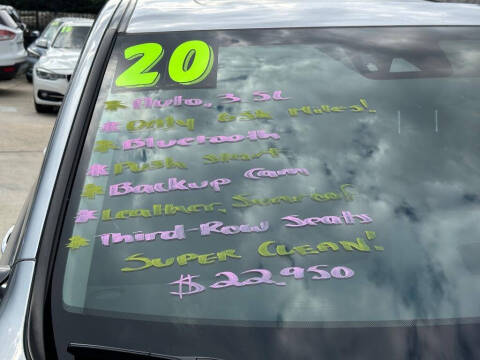 20
* Auto, 3.5L
* Only 65k Miles!
* Bluetooth
* Push Start
* Backup Cam
* Leather, Sunroof
* Third-Row Seats
Super Clean!
$22,950